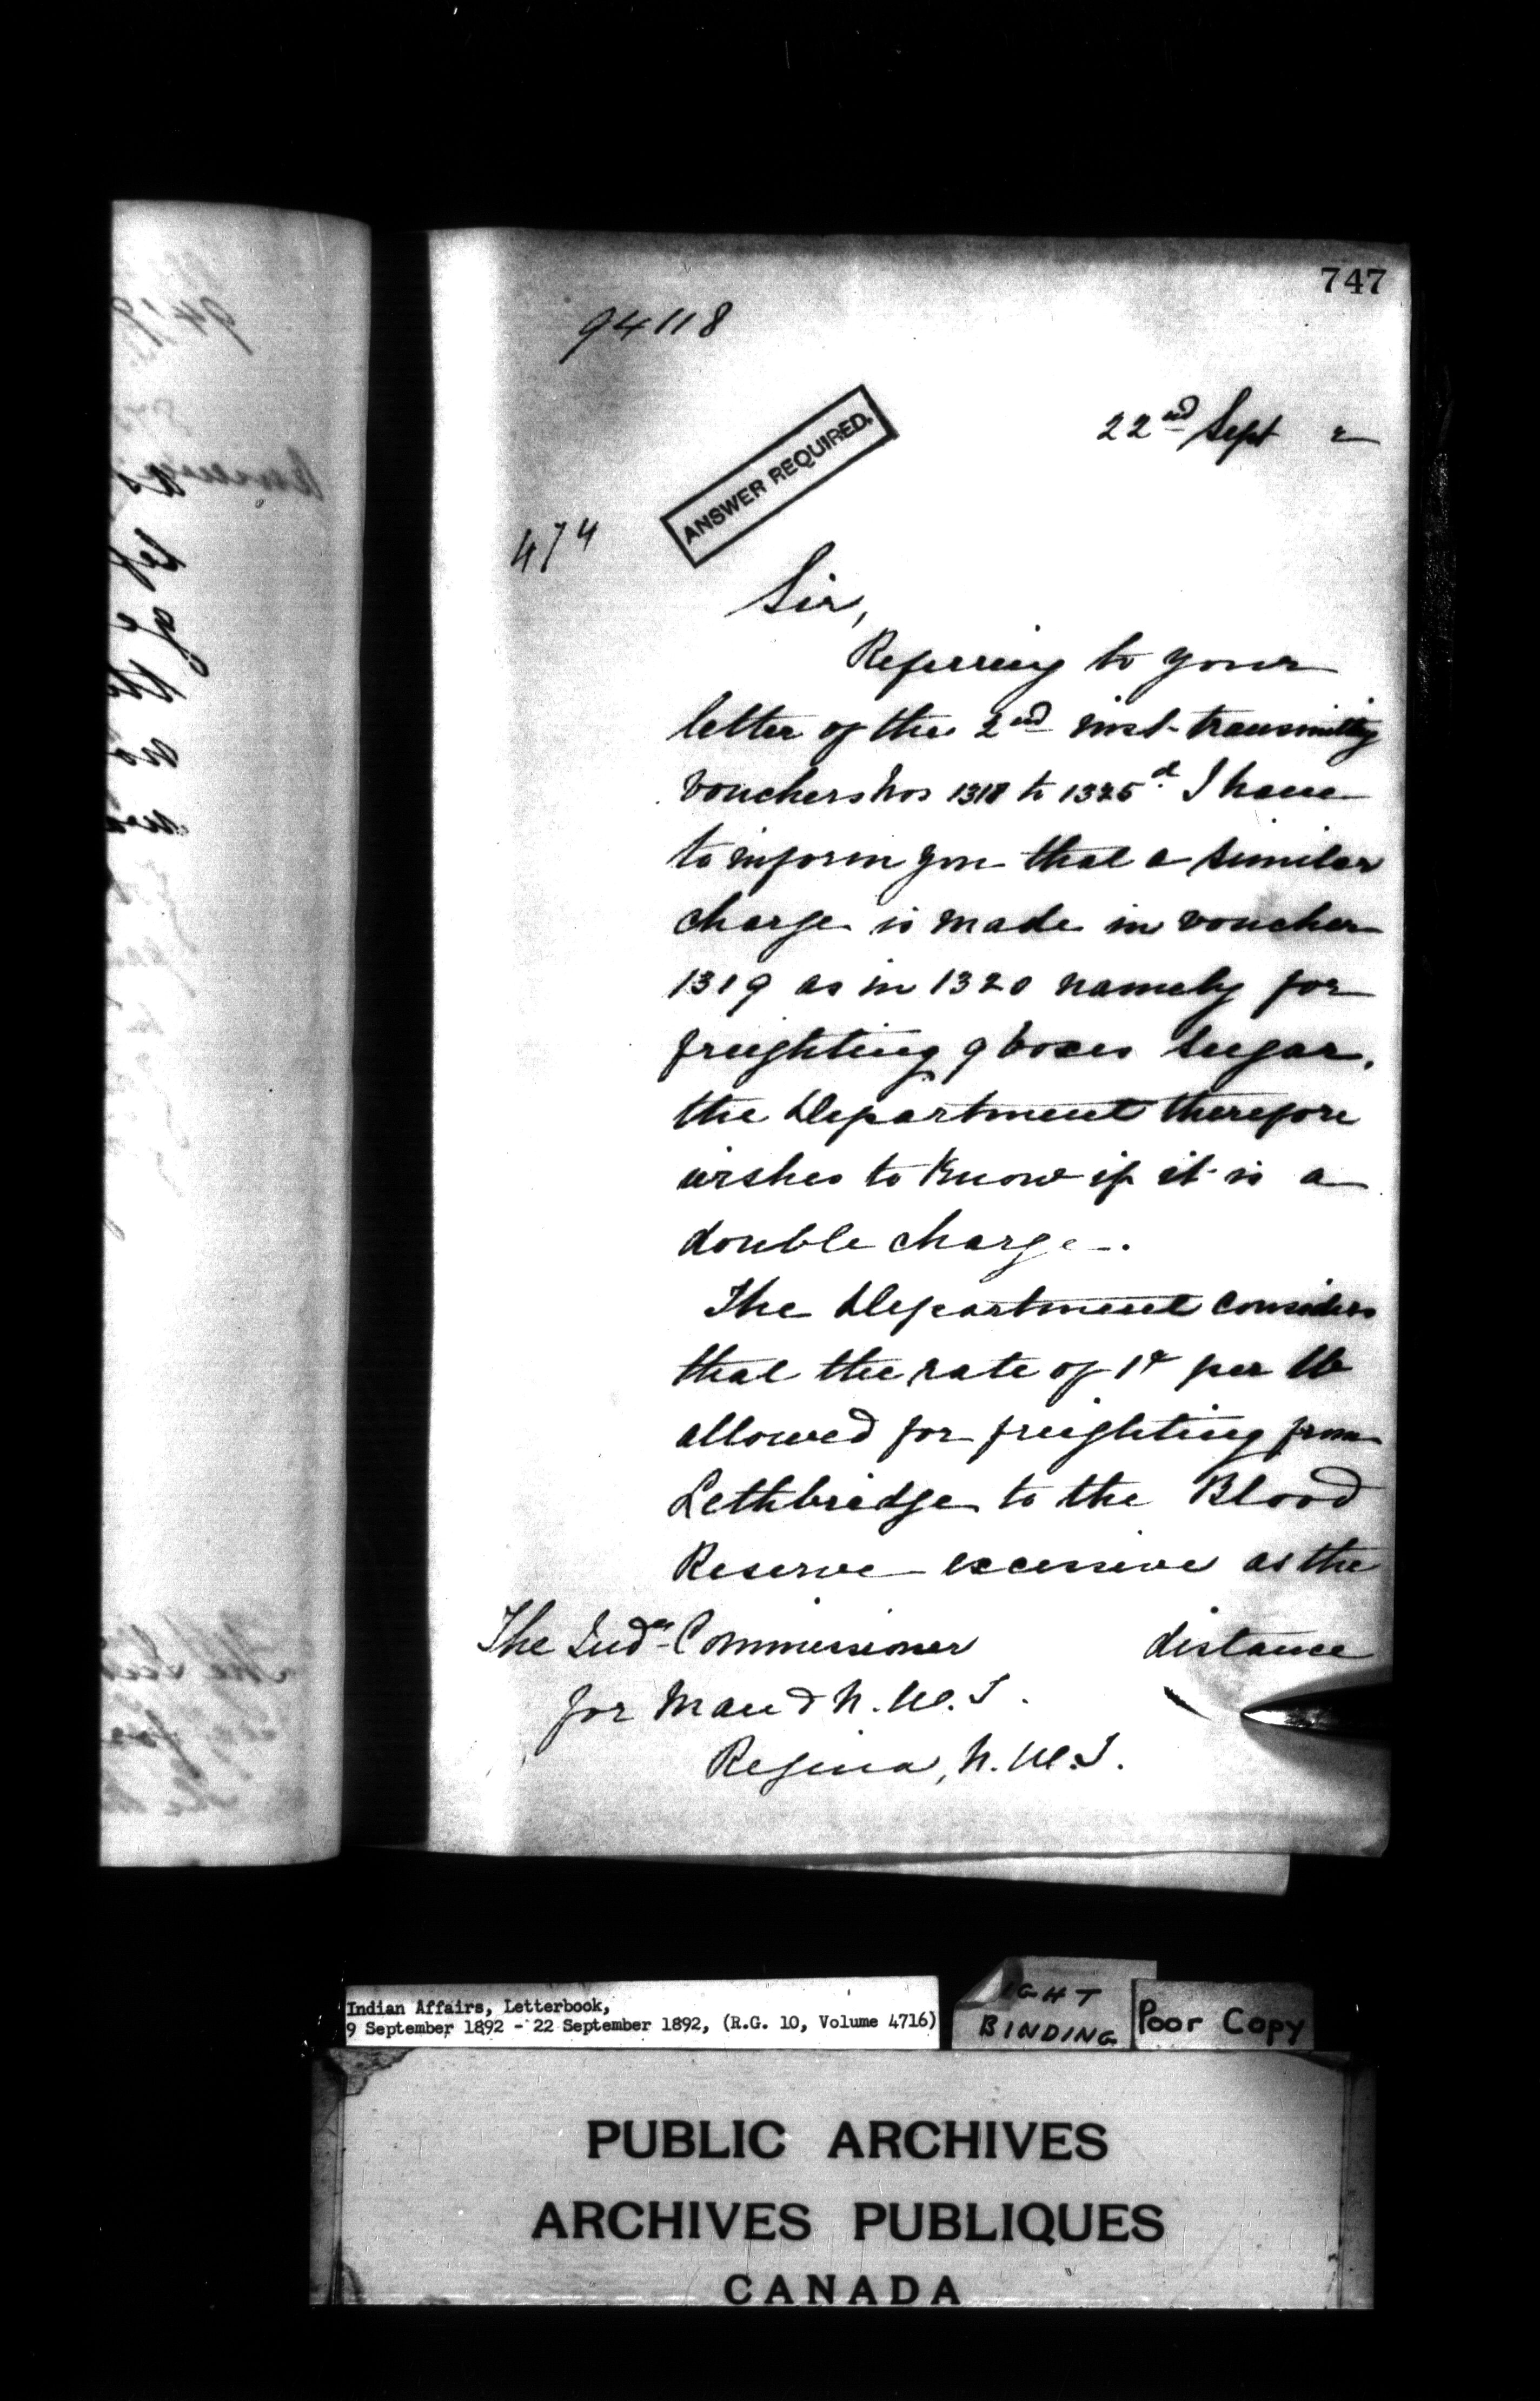 747
94118
22nd Sept 2
ANSWER REQUIRED.
474
Sir,
Referring to your
letter of the 2nd inst. transmitting
vouchers nos 1318 to 1325d I have
to inform you that a similar
charge is made in voucher
1319 as in 1320 namely for
freighting 9 boxes sugar.
the Department therefore
wishes to know if it is a
double charge.
The Department considers
that the rate of 1¢ per lb
allowed for freighting from
Lethbridge to the Blood
Reserve excessive as the
distance
The Indn Commissioner
for Man & N.W.T.
Regina, N.W.T.
Indian Affairs, Letterbook,
9 September 1892 - 22 September 1892, (R.G. 10, Volume 4716)
IGHT
BINDING
Poor Copy
PUBLIC ARCHIVES
ARCHIVES PUBLIQUES
CANADA